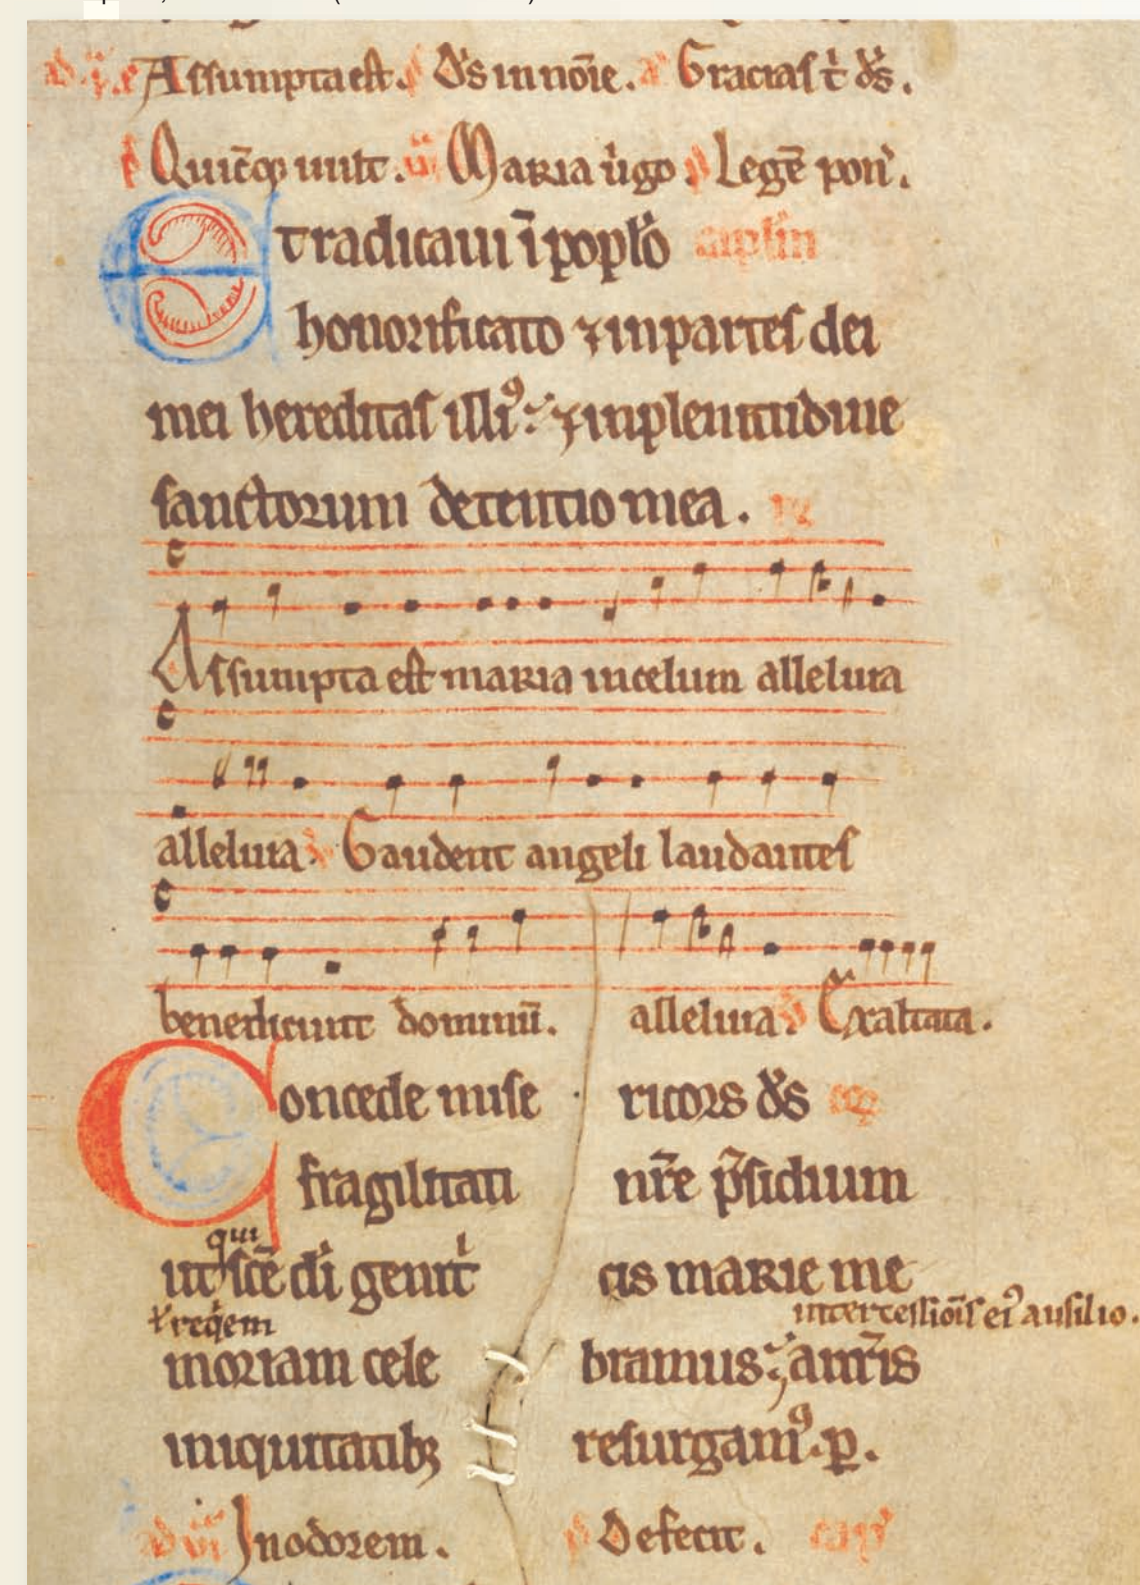 Assumpta est. Ds in noīe. Gracias t ds.
Quicq; uult. Maria ugo. Legē pon.
Et radicaui ī poplo capLm
honorificato ⁊ in partes dei
mei hereditas illiꝰ: ⁊ in plenitudine
sanctorum detentio mea.
Assumpta est maria in celum alleluia
alleluia. Gaudent angeli laudantes
benedicunt dominū. alleluia. Exaltata.
Concede mise ricors ds
fragilitati nr̄e p̄sidium
qui
ut scē di genit cis marie me
⁊ reqem intercessiōis eiꝰ ausilio.
moriam cele bramus: a nr̄is
iniquitatibꝫ resurgamꝰ. p.
In odorem. Defecit. cap